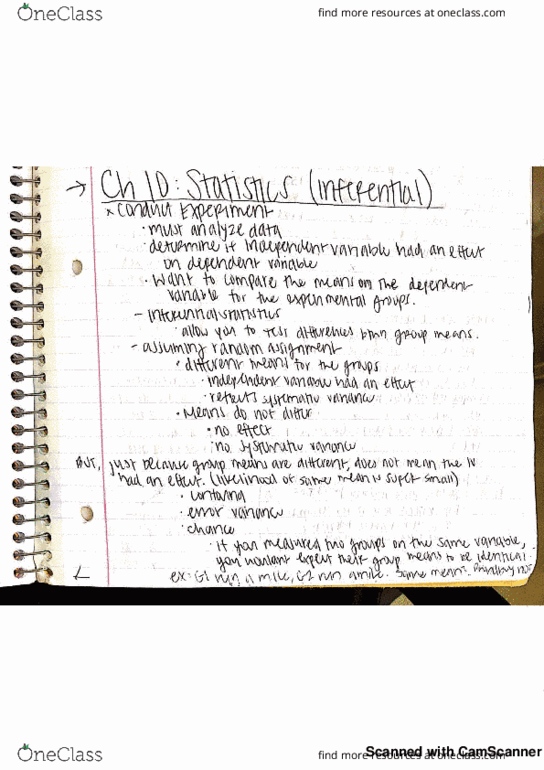 OneClass
find more resources at oneclass.com
→ Ch 10: Statistics (Inferential)
x Conduct Experiment
· must analyze data
· determine if independent variable had an effect
on dependent variable
· Want to compare the means on the dependent
variable for the experimental groups.
- Inferential statistics
· allow you to test differences btwn group means.
- assuming random assignment
· different means for the groups
· independent variable had an effect
· reflects systematic variance
· Means do not differ
· no effect
· no systematic variance
BUT, just because group means are different, does not mean the IV
had an effect. (likelihood of same mean is super small)
· error variance
· chance
· if you measured two groups on the same variable,
you wouldnt expect their group means to be identical.
ex: G1 run a mile, G2 run a mile. same mean? Probably not
OneClass
find more resources at oneclass.com
Scanned with CamScanner